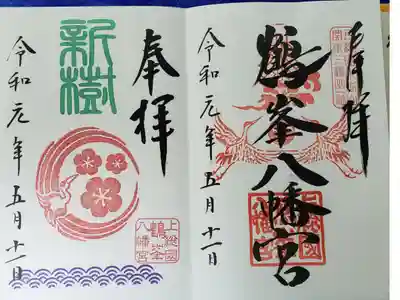 奉拝
鶴峯八幡宮
令和元年五月十一日
奉拝
新樹
令和元年五月十一日
上総国
鶴峯
八幡宮